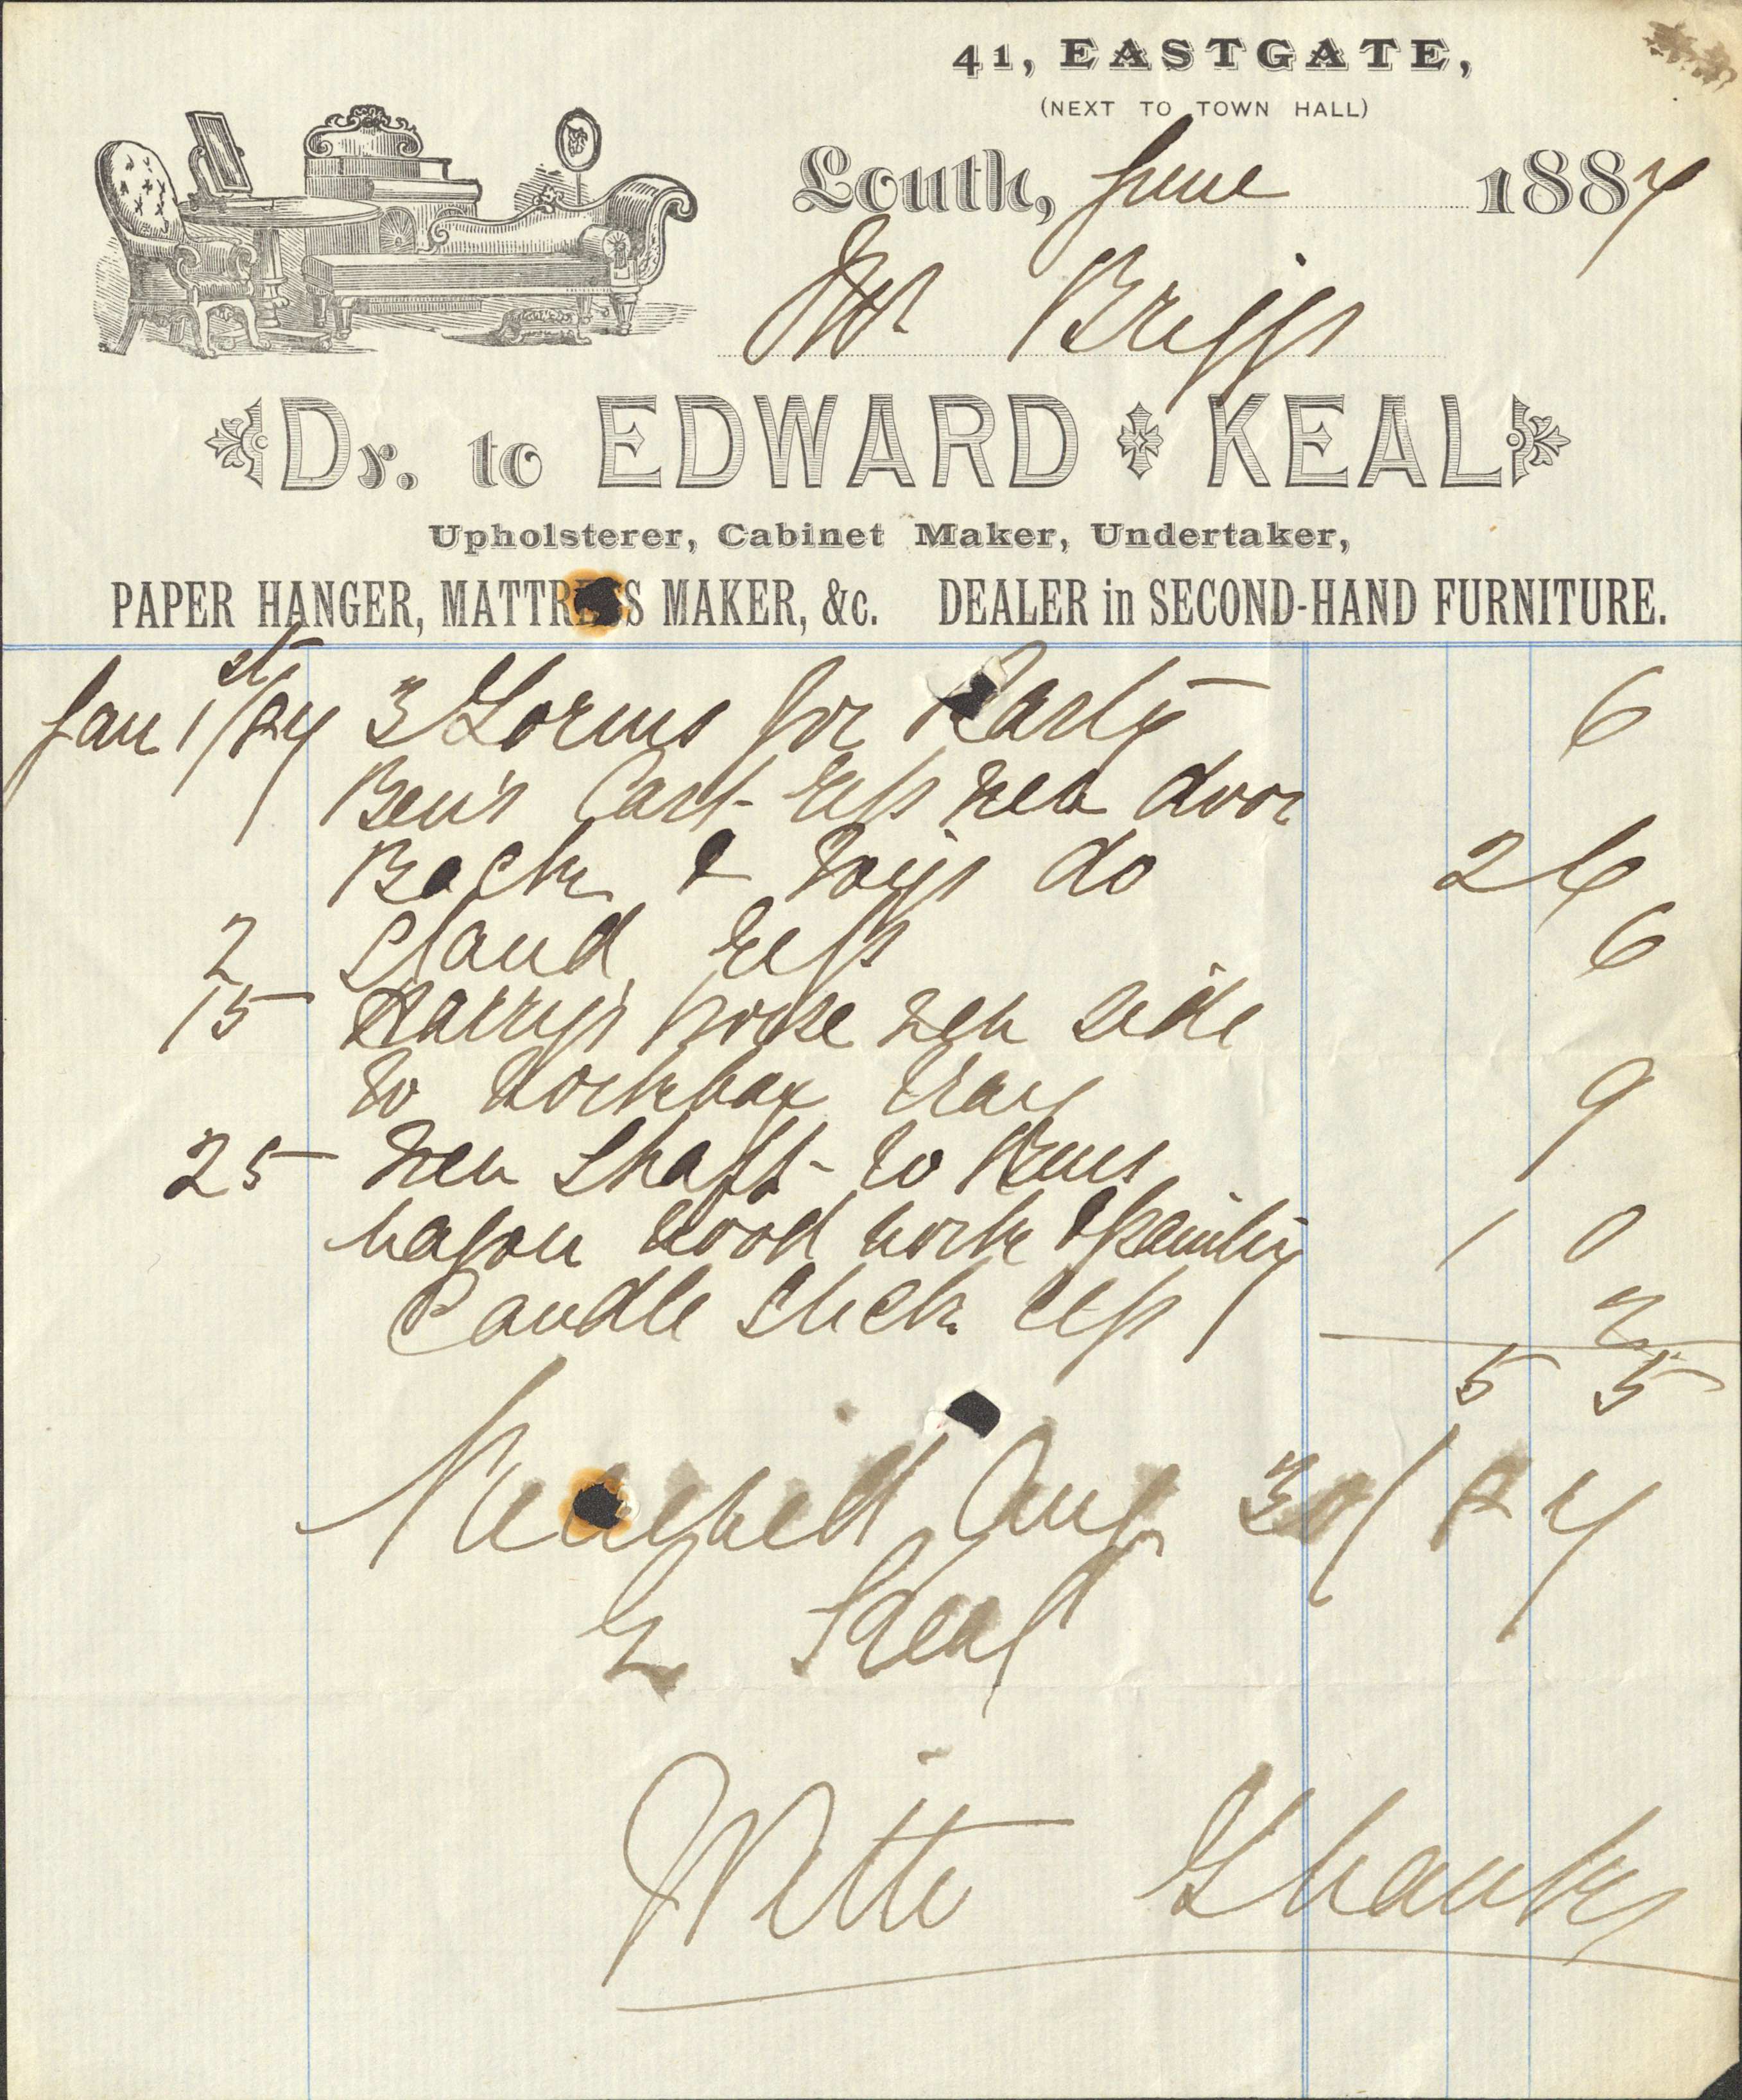 41, EASTGATE,
(NEXT TO TOWN HALL)
Louth, June 1887
Mr Briggs
Dr. to EDWARD KEAL
Upholsterer, Cabinet Maker, Undertaker,
PAPER HANGER, MATTRESS MAKER, &c. DEALER in SECOND-HAND FURNITURE.
Jan 1st/87 3 Forms for Party 6
Ben's Cart new door
Back & do 2 6
2 Stand 6
15 Harry's horse new side
to workbox tray 9
25 new shaft to Bens
wagon wood work & painting 1 0
Candle stick 2
5 5
Received Aug 30/87
E Keal
With Thanks